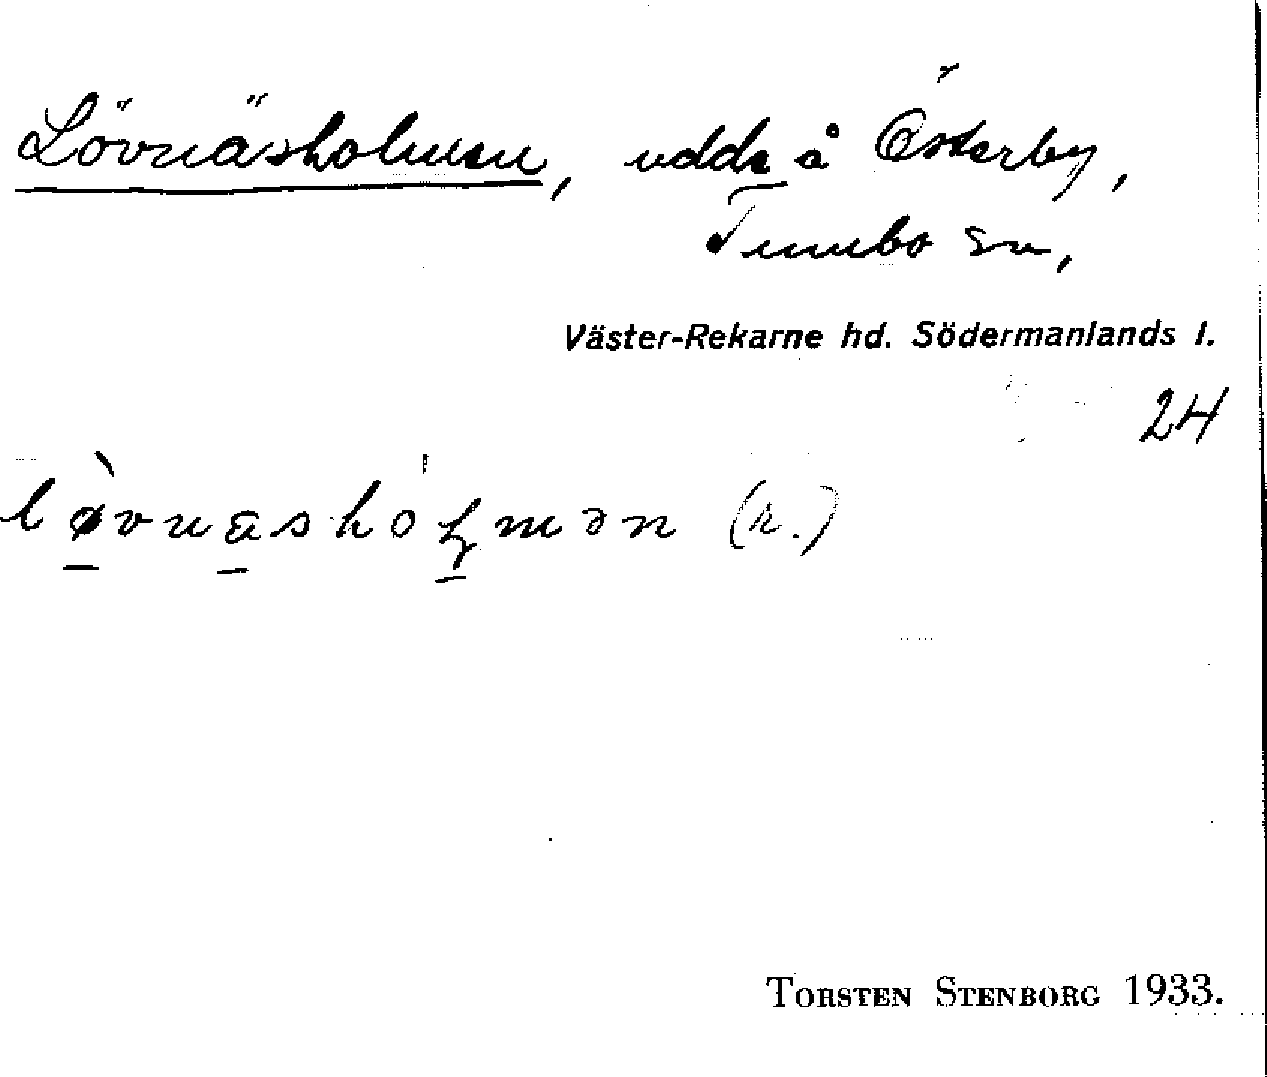 Lövnäsholmen, udde å Österby,
Tumbo sn,
Väster-Rekarne hd. Södermanlands l.
24
lø̀vnäshoɫmən (n.)
TORSTEN STENBORG 1933.